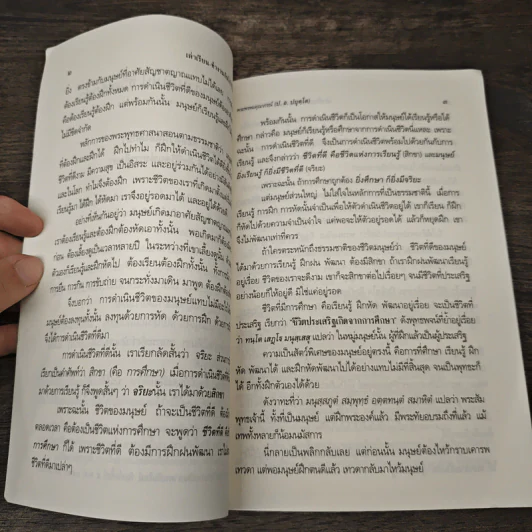 ๒
ถึง ตรงข้ามกับมนุษย์ที่อาศัยสัญชาตญาณแทบไม่ได้เลย
ต้องเรียนรู้ต้องฝึกทั้งหมด การดำเนินชีวิตที่ดีของมนุษย์
ต้องเรียนรู้ต้องฝึก แต่พร้อมกันนั้น มนุษย์ก็เรียนรู้และฝึก
ไม่มีขีดจำกัด
หลักการของพระพุทธศาสนาสอนตามธรรมชาติว่า
ที่ต้องฝึกและฝึกได้ ฝึกไปทำไม ก็ฝึกให้ดำเนินชีวิตได้ดี
ชีวิตที่ดีงาม มีความสุข เป็นอิสระ และอยู่ร่วมกันได้อย่าง
และในโลก ทำไมจึงต้องฝึก เพราะชีวิตของเราที่เกิดมา
เรียนรู้มา ได้ฝึก ได้หัดมา เราจึงอยู่รอดมาได้ และอยู่ได้ด้วยดี
อย่างที่พูดกันอยู่ว่า มนุษย์เกิดมาอาศัยสัญชาตญาณ
เราต้องเรียนรู้และต้องฝึกต้องหัดเอาทั้งนั้น พอเกิดมา
ก่อน ต้องเลี้ยงดูเป็นเวลาหลายปี ในระหว่างที่เขาเลี้ยงดูนั้น
ตัวเองก็เรียนรู้และฝึกหัดไป ต้องเรียนต้องฝึกทั้งนั้น ทั้งการ
การยืน การกิน การขับถ่าย จนกระทั่งมาเดิน มาพูด ต้องฝึก
จึงบอกว่า การดำเนินชีวิตของมนุษย์แทบไม่มี
มนุษย์ต้องลงทุนทั้งนั้น ลงทุนด้วยการหัด ด้วยการฝึก
จึงได้การดำเนินชีวิตที่ดีมา
การดำเนินชีวิตที่ดีนั้น เราเรียกสั้นๆว่า จริยะ
เรียกเป็นคำศัพท์ว่า สิกขา (คือ การศึกษา) เมื่อการดำเนินชีวิต
มาด้วยการเรียนรู้ ก็จึงพูดสั้นๆ ว่า จริยะนั้น เราได้มาด้วยสิกขา
เพราะฉะนั้น ชีวิตของมนุษย์ ถ้าจะเป็นชีวิตที่ดี
ตลอดเวลา คือต้องเป็นชีวิตแห่งการศึกษา จะพูดว่า ชีวิตที่ดี
การศึกษา ก็ได้ เพราะชีวิตที่ดี ต้องมีการฝึกฝนพัฒนา
ชีวิตที่ดีมาเปล่าๆ
๓
พร้อมกันนั้น การดำเนินชีวิตก็เป็นโอกาสให้มนุษย์ได้เรียนรู้หรือได้
ศึกษา กล่าวคือ มนุษย์ก็เรียนรู้หรือศึกษาจากการดำเนินชีวิตนี่แหละ เพราะ
ฉะนั้น การดำเนินชีวิตที่ดี จึงเป็นการดำเนินชีวิตพร้อมไปด้วยกันกับการ
เรียนรู้ และจึงกล่าวว่า ชีวิตที่ดี คือชีวิตแห่งการเรียนรู้ (สิกขา) และมนุษย์
ยิ่งเรียนรู้ ก็ยิ่งมีชีวิตที่ดี (จริยะ)
เพราะฉะนั้น ถ้าศึกษาถูกต้อง ยิ่งศึกษา ก็ยิ่งมีจริยะ
แต่มนุษย์ส่วนใหญ่ ไม่ใส่ใจในหลักการที่เป็นธรรมชาตินี้ เมื่อการ
เรียนรู้ การฝึก การหัดนั้นจำเป็นเพื่อให้ตัวดำเนินชีวิตอยู่ได้ เขาก็เรียน ก็
ฝึกก็หัดไปด้วยความจำเป็นจำใจ แต่พอจะให้ตัวอยู่รอดได้ แล้วก็หยุดฝึก เขา
จึงไม่พัฒนาเท่าที่ควร
ถ้าใครตระหนักถึงธรรมชาติของชีวิตมนุษย์ว่า ชีวิตที่ดีของมนุษย์
ได้มาด้วยการเรียนรู้ ฝึกฝน พัฒนา ต้องมีสิกขา ถ้าเราฝึกฝนพัฒนาเรียนรู้
อยู่เรื่อย ชีวิตของเราจะดีงาม เขาก็จะสิกขาต่อไปเรื่อยๆ จนมีชีวิตที่ประเสริฐ
อย่างน้อยก็ให้อยู่ดี มิใช่แค่อยู่รอด
ชีวิตที่มีการศึกษา คือเรียนรู้ ฝึกหัด พัฒนาอยู่เรื่อย จะเป็นชีวิตที่
ประเสริฐ เรียกว่า "ชีวิตประเสริฐเกิดจากการศึกษา" ดังพุทธพจน์ที่ย้ำอยู่เรื่อย
ว่า ทนฺโต เสฏฺโฐ มนุสฺเสสุ แปลว่า ในหมู่มนุษย์นั้น ผู้ที่ฝึกแล้วเป็นผู้ประเสริฐ
ความเป็นสัตว์พิเศษของมนุษย์อยู่ตรงนี้ คือการที่ศึกษา เรียนรู้ ฝึก
หัด พัฒนาได้ และฝึกหัดพัฒนาไปได้อย่างแทบไม่มีที่สิ้นสุด จนเป็นพุทธะก็
ได้ อีกทั้งฝึกตัวเองได้ด้วย
ดังวาทะที่ว่า มนุสฺสภูตํ สมฺพุทฺธํ อตฺตทนฺตํ สมาหิตํ แปลว่า พระสัม
พุทธเจ้านี้ ทั้งที่เป็นมนุษย์ แต่ฝึกพระองค์แล้ว มีพระทัยอบรมถึงที่แล้ว แม้
เทพทั้งหลายก็น้อมนมัสการ
นี่กลายเป็นพลิกกลับเลย แต่ก่อนนั้น มนุษย์ต้องไหว้กราบเคารพ
เทวดา แต่พอมนุษย์ฝึกตนดีแล้ว เทวดากลับมาไหว้มนุษย์